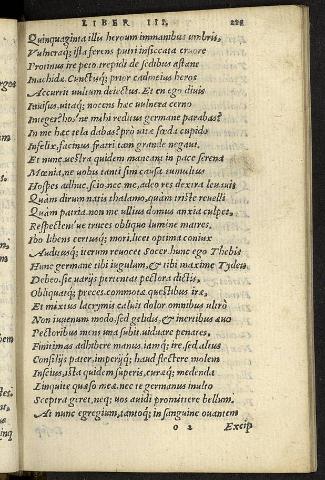 LIBER III.
Quinquaginta illis heroum immanibus umbris,
Vulneraq; ista ferens putri insiccata cruore
Proximus ire peto. trepidi de sedibus astant
Inachidæ. Cunctusq; prior cadmeius heros
Accurrit vultum deiectus. Et en ego diuis
Inuisus, uitaq; nocens hæc uulnera cerno
Integer? hos ne mihi reditus germane parabas?
In me hæc tela dabas? pro uitæ fœda cupido
Infelix, facinus fratri tam grande negaui.
Et nunc uestra quidem maneant in pace serena
Mœnia, ne uobis tanti sim causa tumultus
Hospes adhuc, scio. nec me, adeo res dextra leuauit
Quam dirum natis thalamo, quam triste reuelli
Quam patria. non me ullius domus anxia culpet,
Respectent ue truces obliquo lumine matres.
Ibo libens certusq; mori, licet optima coniux
Auditusq; iterum reuocet socer. hunc ego Thebis
Hunc germane tibi iugulum, & tibi maxime Tydeu
Debeo. sic uarijs pertentat pectora dictis,
Obliquatq; preces. commotæ questibus iræ,
Et mixtus lacrymis caluit dolor. omnibus ultro
Non iuuenum modo, sed gelidis, & inertibus æuo
Pectoribus mens una subit. uiduare penates,
Finitimas adhibere manus, iamq; ire. sed altus
Consilijs pater, imperijq; haud flectere molem
Inscius, ista quidem superis, curæq; medenda
Linquite quæso meæ. nec te germanus inulto
Sceptra geret, neq; uos auidi promittere bellum.
At nunc egregium, tantoq; in sanguine ouantem
o 2 Excip